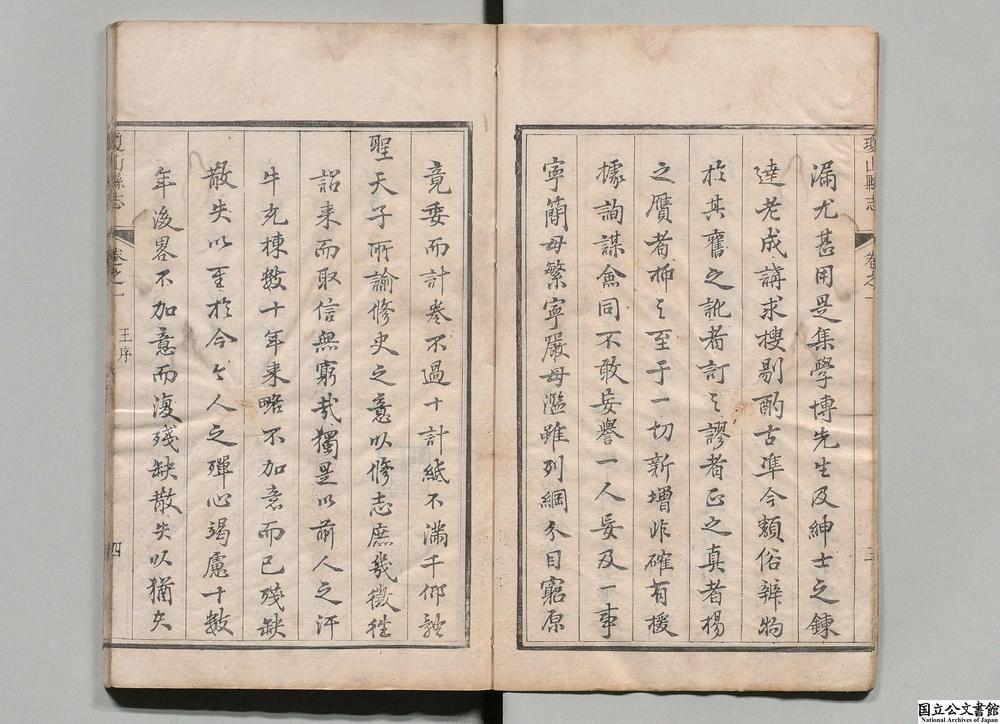 瓊山縣志
卷之一
三
漏尤甚用是集學博先生及紳士之鍊
達老成講求搜剔酌古準今類俗辨物
於其舊之訛者訂之謬者正之真者楊
之贋者抑之至于一切新增非確有援
據詢謀僉同不敢妄譽一人妄及一事
寧簡毋繁寧嚴毋濫雖列綱分目窮原
竟委而計卷不過十計紙不滿千仰體
聖天子所諭修史之意以修志庶幾徵往
詔来而取信無窮哉獨是以前人之汗
牛充棟數十年来略不加意而已殘缺
散失以至於今今人之殫心竭慮十數
年後畧不加意而復殘缺散失以猶夫
瓊山縣志
卷之一
王序
四
国立公文書館
National Archives of Japan